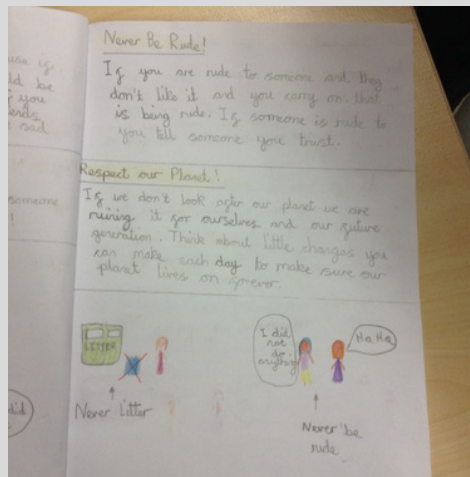 use is
ld be
if you
ends
sad
someone
did
Never Be Rude!
If you are rude to someone and they
don't like it and you carry on. that
is being rude. If someone is rude to
you tell someone you trust.
Respect our Planet!
If we don't look after our planet we are
ruining it for ourselves and our future
generation. Think about little changes you
can make each day to make sure our
planet lives on forever.
LITTER
Never Litter
I did
not
do
anything
Ha Ha
Never be
rude